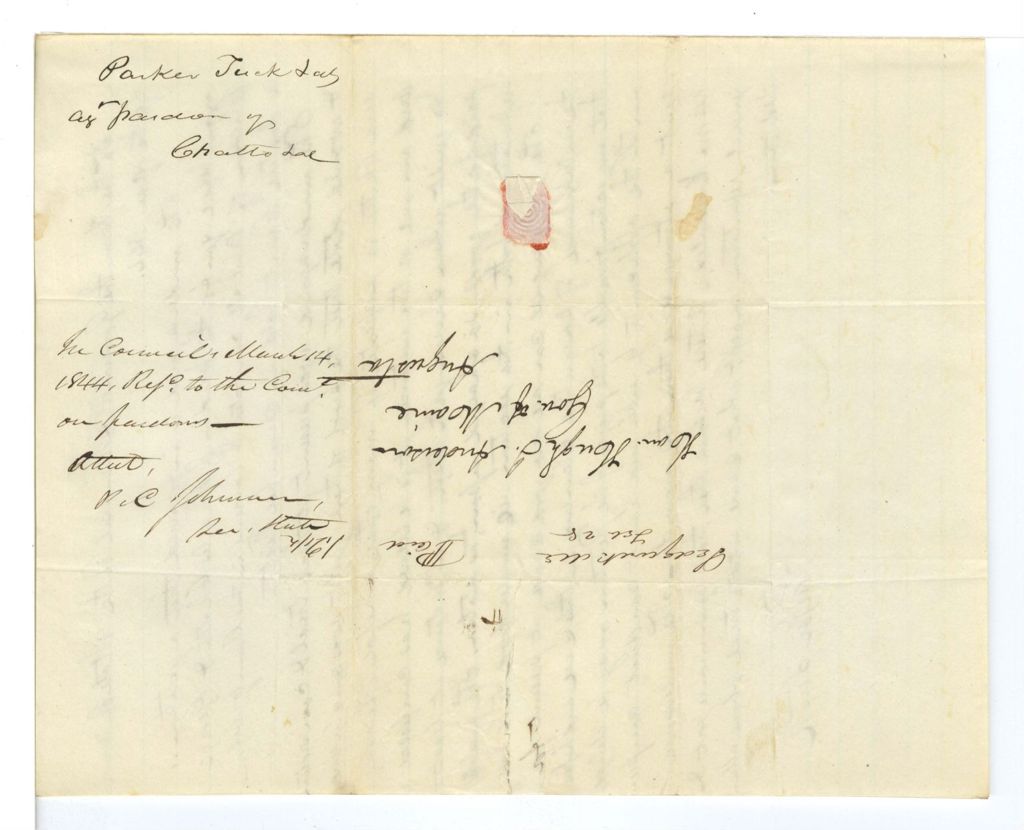 Parker Tuck
agt pardon of
Chatto
In Council, March 14,
1844, Refd. to the Comt.
on pardons—
Attest,
P. C. Johnson,
Sec. State
Sedgwick Me
Feb 28
Paid
12 1/2
Hon. Hugh J. Anderson
Gov. of Maine
Augusta